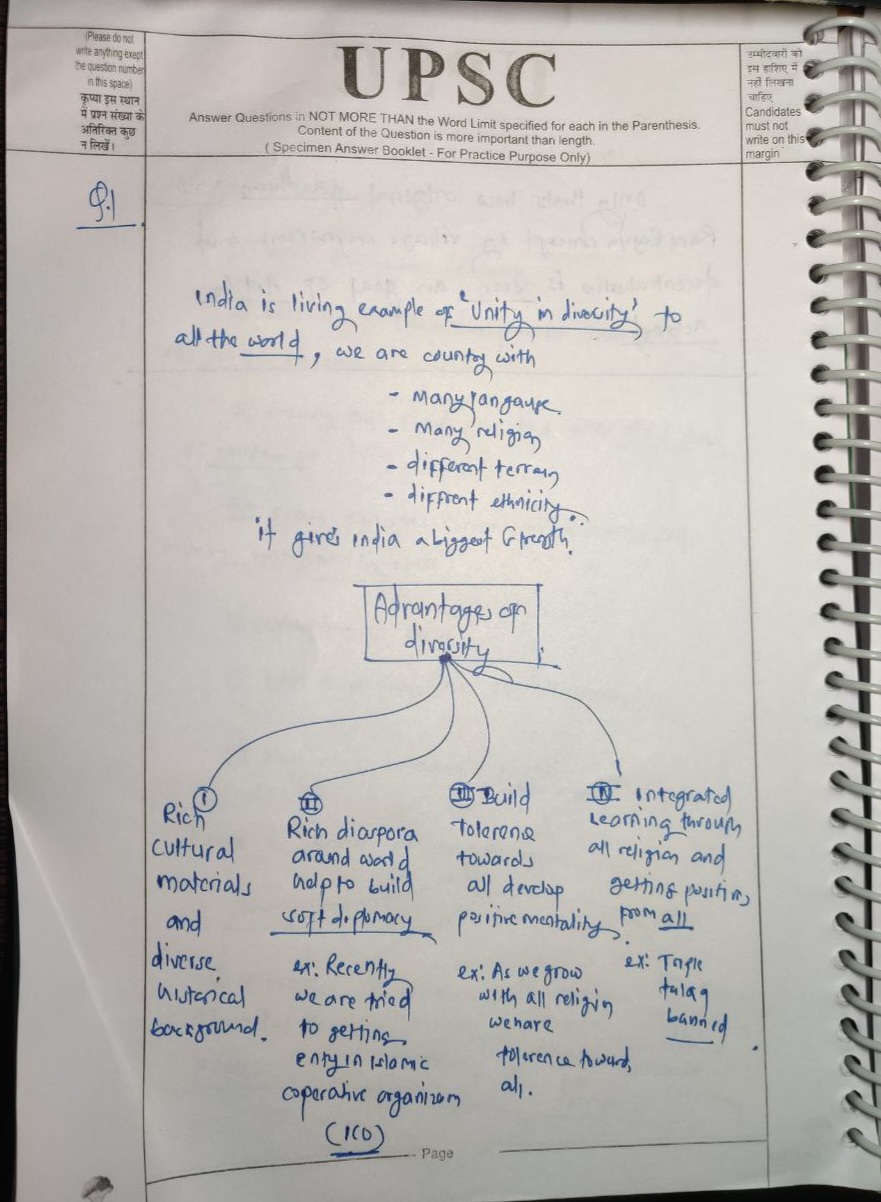 (Please do not
write anything exept
the question number
in this space)
कृप्या इस स्थान
में प्रश्न संख्या के
अतिरिक्त कुछ
न लिखें।
UPSC
Answer Questions in NOT MORE THAN the Word Limit specified for each in the Parenthesis.
Content of the Question is more important than length.
( Specimen Answer Booklet - For Practice Purpose Only)
उम्मीदवारों को
इस हाशिए में
नहीं लिखना
चाहिए
Candidates
must not
write on this
margin
Q.1
India is living example of 'Unity in divocity' to
all the world, we are country with
- Many langause
- Many religion
- different terrain
- diffrent ethnicity.
it gives india a biggest Strength.
Advantages of
divorsity
I
Rich
cultural
materials
and
diverse
historical
background.
II
Rich diaspora
around world
help to build
soft diplomacy
ex: Recently
we are tried
to getting
enty in Islamic
coperative organizem
(ICO)
III Build
tolerence
towards
all develop
positive mentality.
ex: As we grow
with all religion
we have
tolerence toward
all.
IV Integrated
Learning through
all religion and
getting positives
from all
ex: Triple
talaq
banned
Page